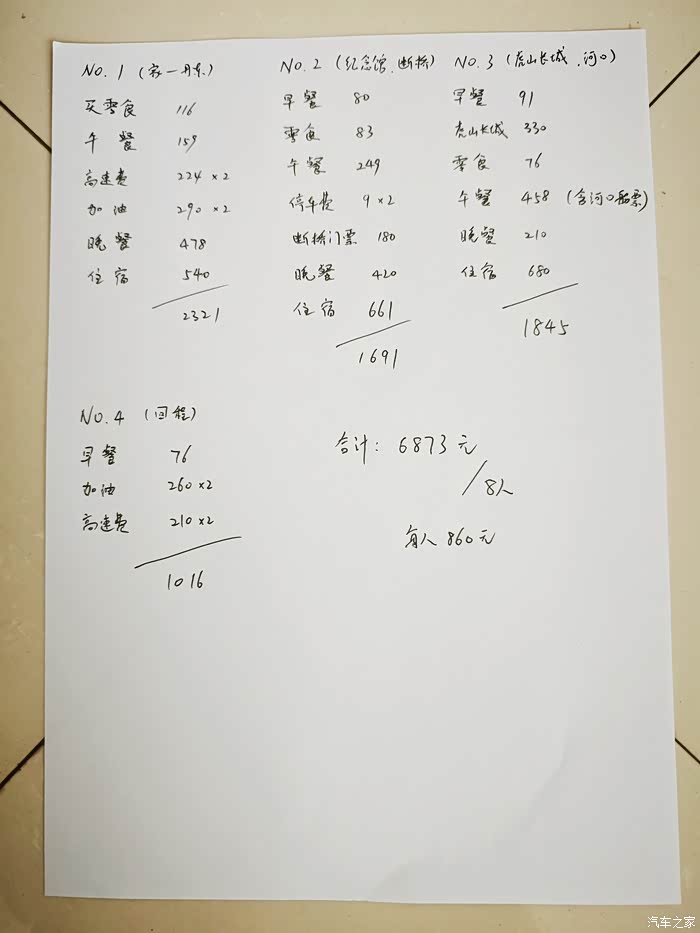 NO.1 (家一丹东)
买零食 116
午餐 159
高速费 224×2
加油 290×2
晚餐 478
住宿 540
2321
NO.2 (纪念馆、断桥)
早餐 80
零食 83
午餐 249
停车费 9×2
断桥门票 180
晚餐 420
住宿 661
1691
NO.3 (虎山长城、河口)
早餐 91
虎山长城 330
零食 76
午餐 458 (含河口船票)
晚餐 210
住宿 680
1845
NO.4 (回程)
早餐 76
加油 260×2
高速费 210×2
1016
合计: 6873元
/8人
每人 860元
汽车之家